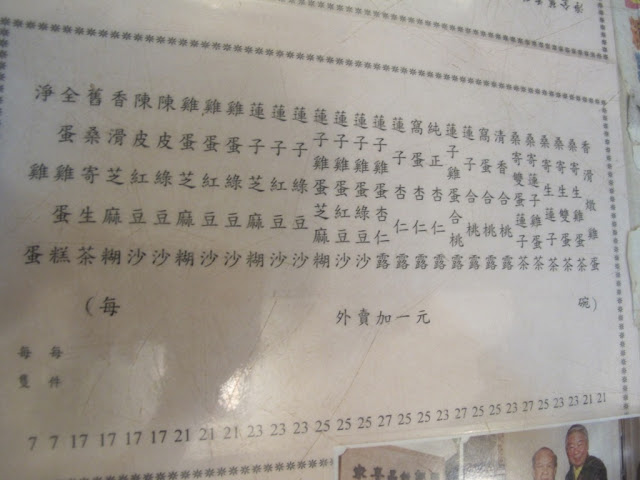 香滑燉雞蛋
桑寄生雞蛋茶
桑寄生雙蛋茶
桑寄生蓮子茶
桑寄蓮子雞蛋茶
桑寄雙蛋蓮子茶
清香合桃露
窩蛋合桃露
蓮子合桃露
蓮子雞蛋合桃露
純正杏仁露
窩蛋杏仁露
蓮子杏仁露
蓮子雞蛋杏仁露
蓮子雞蛋綠豆沙
蓮子雞蛋紅豆沙
蓮子雞蛋芝麻糊
蓮子綠豆沙
蓮子紅豆沙
蓮子芝麻糊
雞蛋綠豆沙
雞蛋紅豆沙
雞蛋芝麻糊
陳皮綠豆沙
陳皮紅豆沙
香滑芝麻糊
舊桑寄生茶
全蛋雞蛋糕
淨雞蛋
(每 碗)
外賣加一元
每件
每隻
7 7 17 17 17 17 21 21 21 23 23 23 25 25 25 27 25 25 23 27 25 25 23 27 25 23 23 21 21